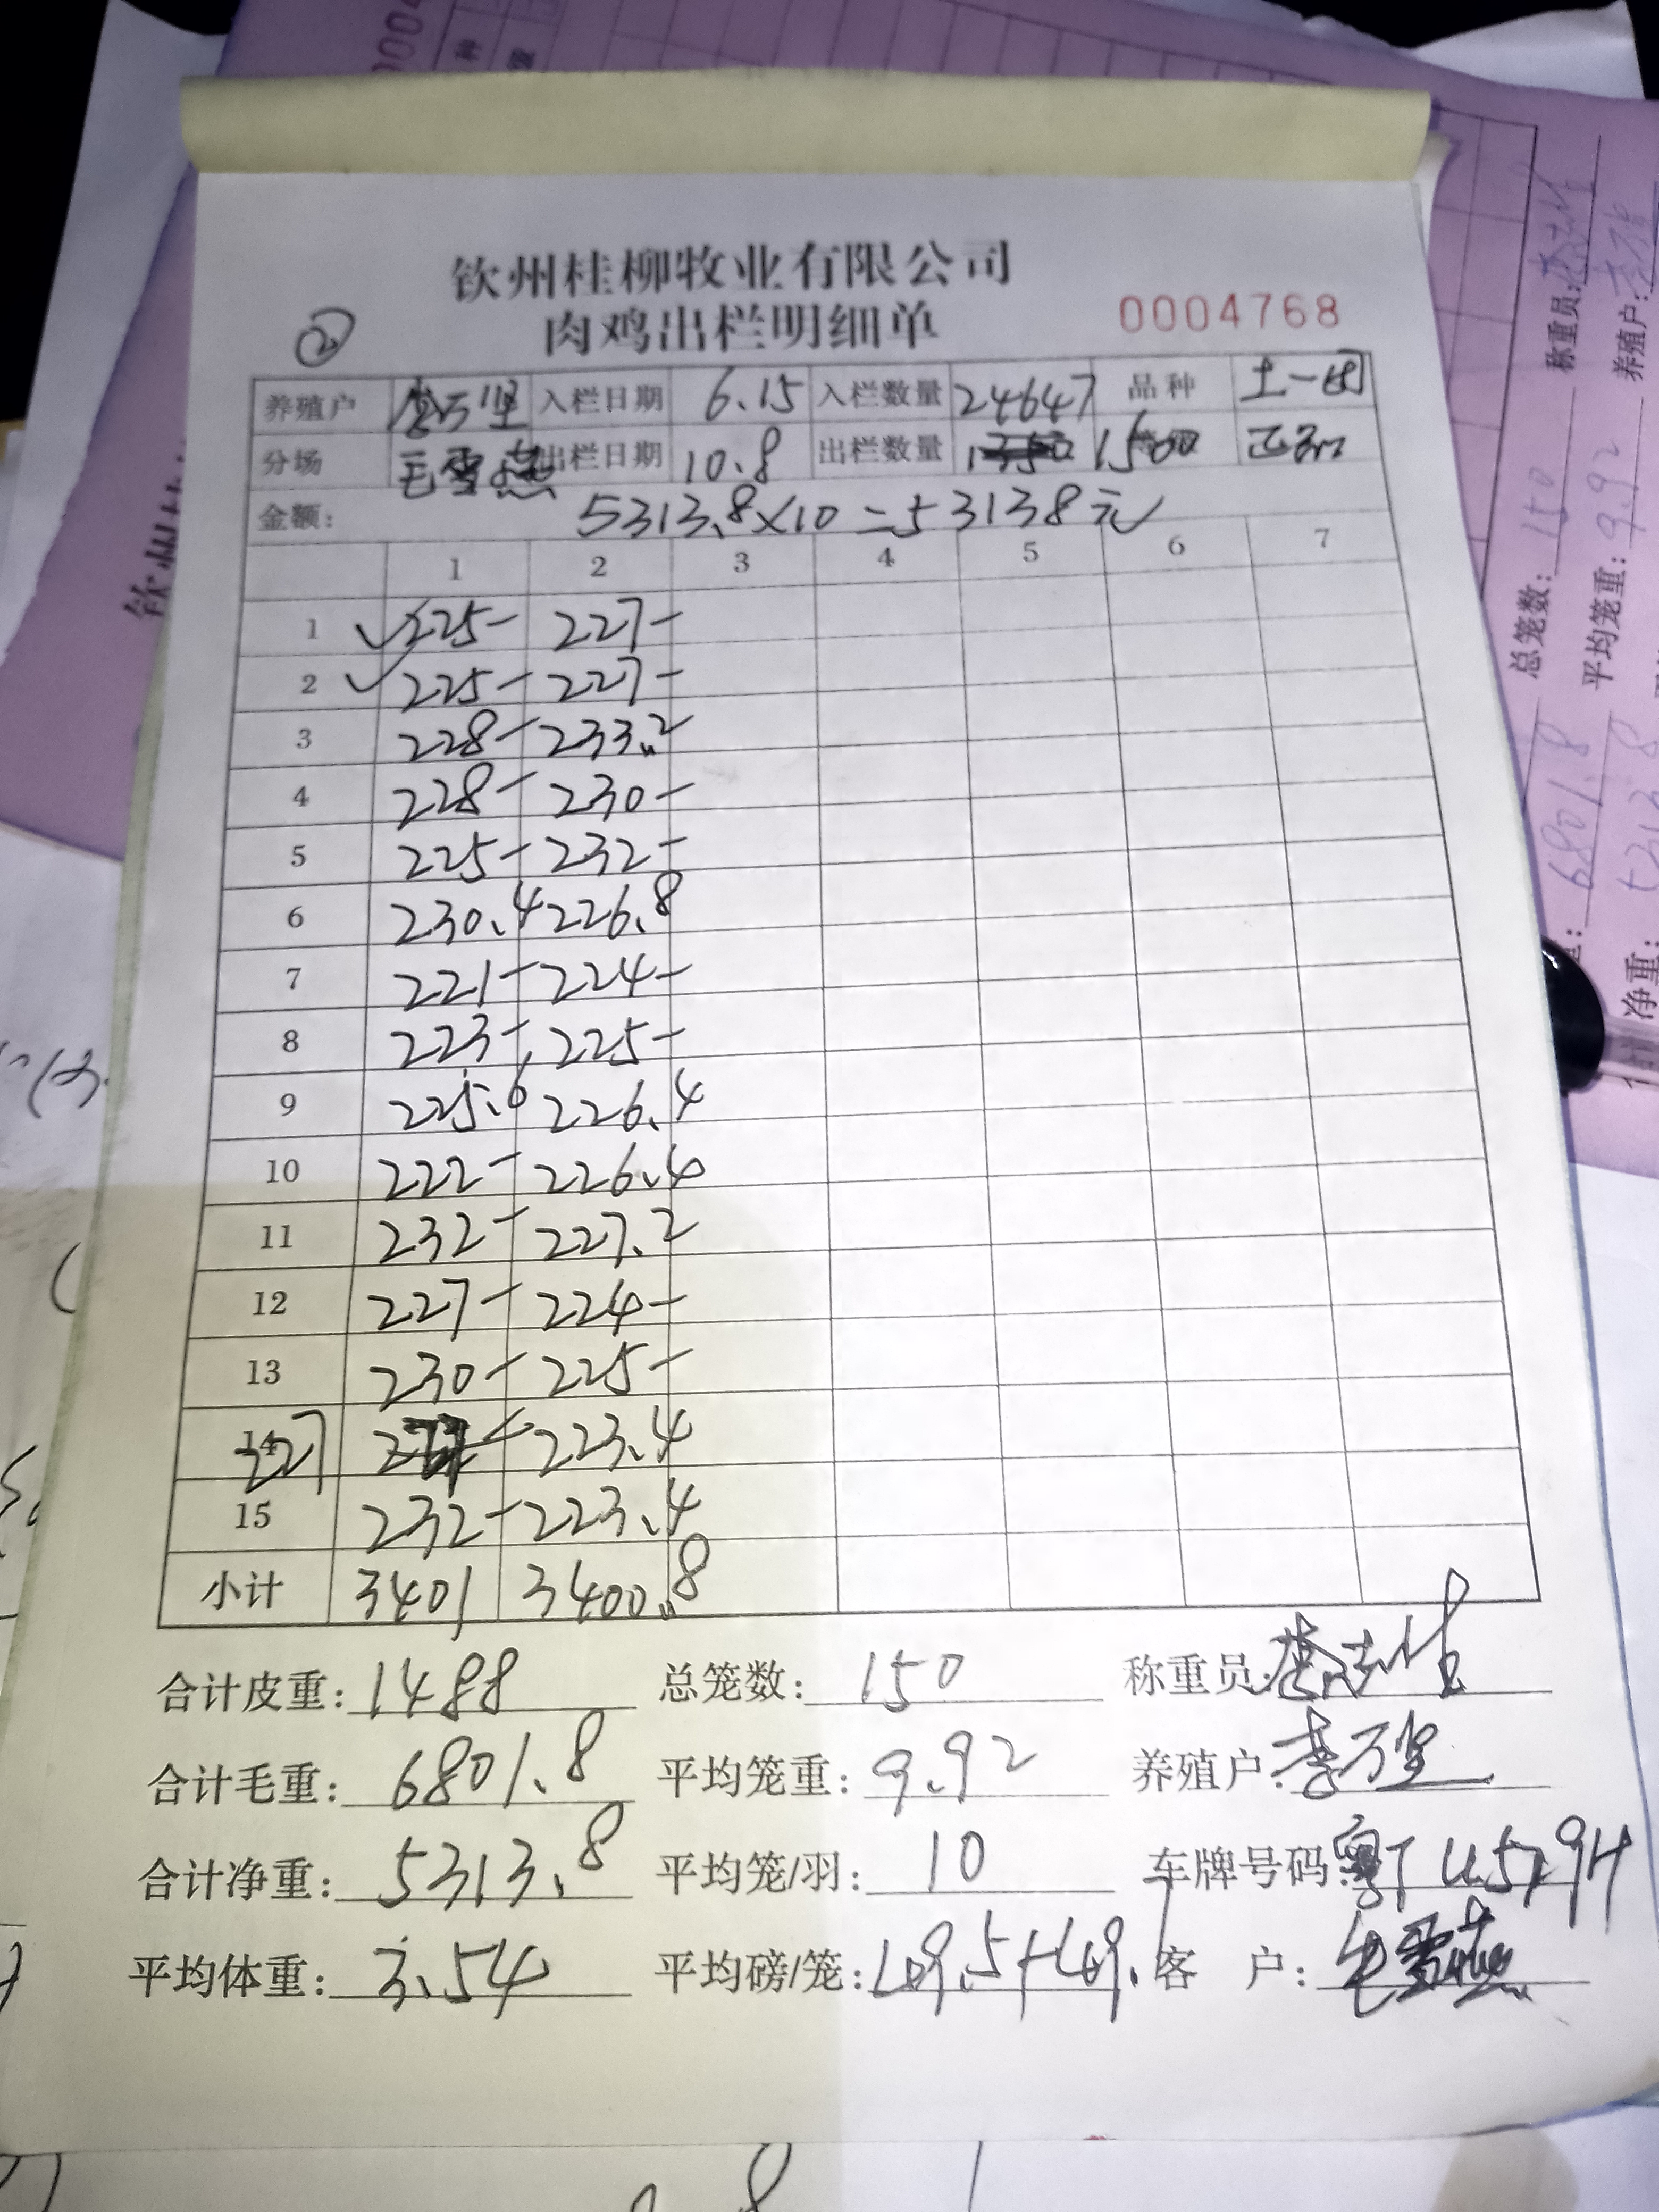 钦州桂柳牧业有限公司
肉鸡出栏明细单 0004768
②
养殖户 李万坚 入栏日期 6.15 入栏数量 24647 品种 土一
分场 毛雪燕 出栏日期 10.8 出栏数量 1500
金额: 5313.8×10=53138元
1 2 3 4 5 6 7
1 225- 227-
2 225- 227-
3 228- 233.2
4 228- 230-
5 225- 232-
6 230.4 226.8
7 221- 224-
8 223- 225-
9 225.6 226.4
10 222- 226.4
11 232- 227.2
12 227- 224-
13 230- 225-
14 227 223.4
15 232- 223.4
小计 3401 3400.8
合计皮重: 1488 总笼数: 150 称重员:
合计毛重: 6801.8 平均笼重: 9.92 养殖户: 李万坚
合计净重: 5313.8 平均笼/羽: 10 车牌号码: 粤T
平均体重: 3.54 平均磅/笼: 客 户: 毛雪燕
称重员:
养殖户:
总笼数: 150
平均笼重: 9.92
6801.8
净重: